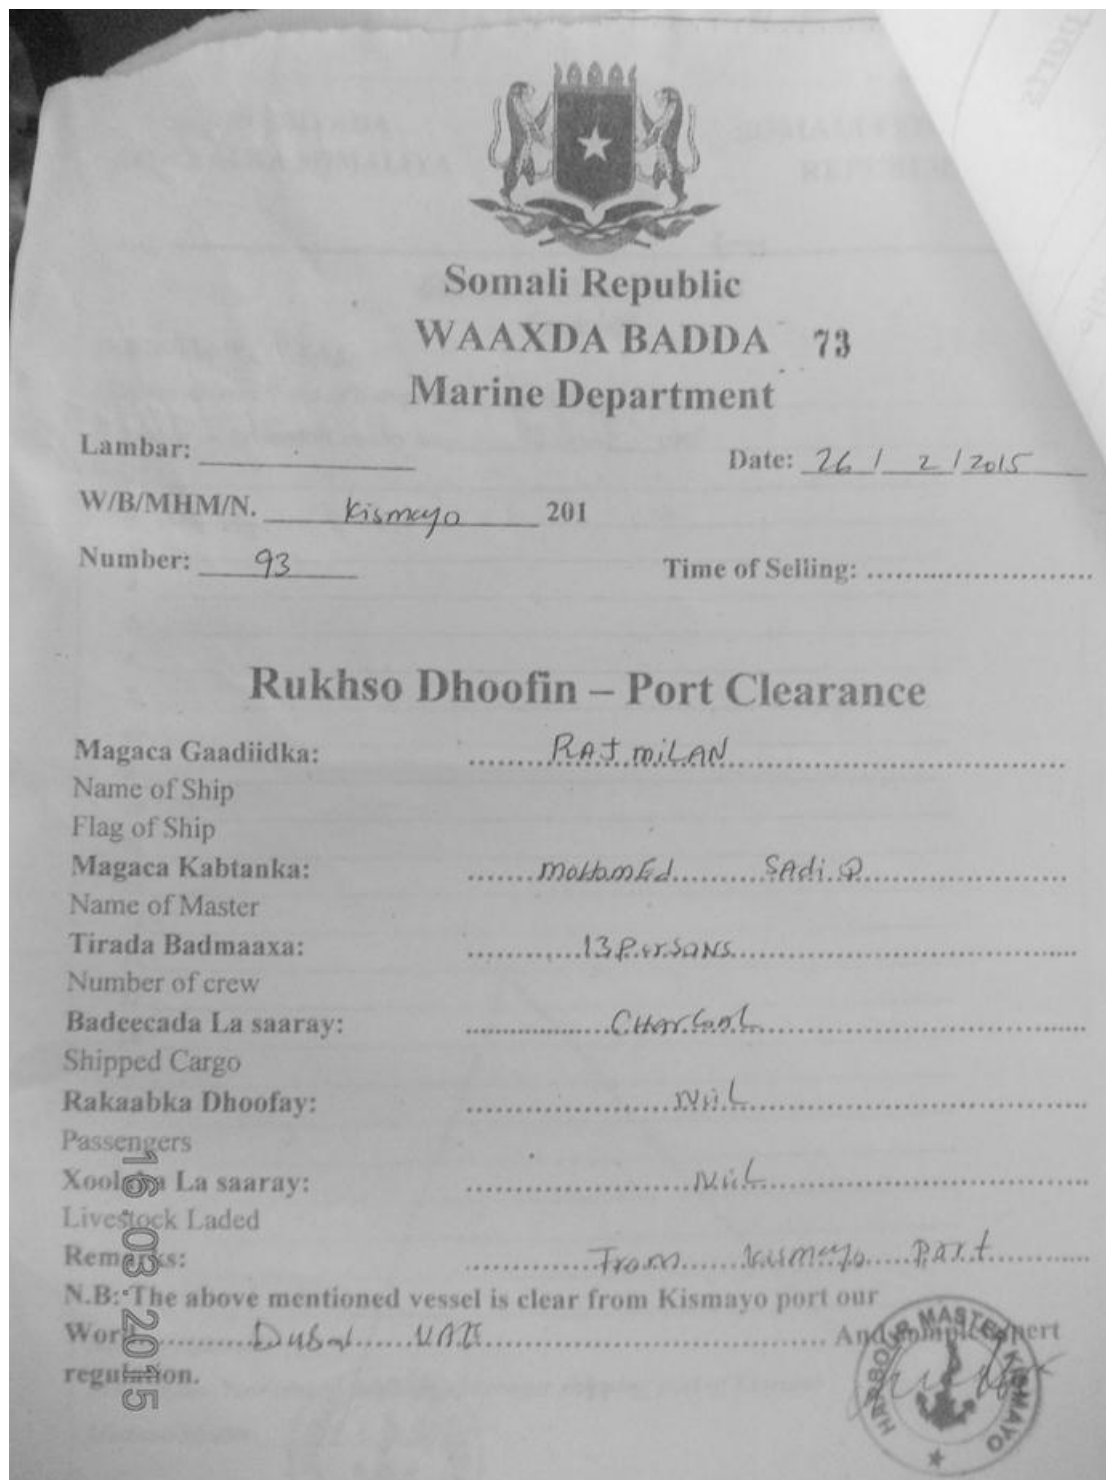 Somali Republic
WAAXDA BADDA 73
Marine Department
Lambar: ____________
Date: 26 / 2 / 2015
W/B/MHM/N. Kismayo 201
Number: 93
Time of Selling: ............................
Rukhso Dhoofin – Port Clearance
Magaca Gaadiidka: RAJ MILAN
Name of Ship
Flag of Ship
Magaca Kabtanka: MOHAMEd SAdiQ
Name of Master
Tirada Badmaaxa: 13 PersoNS
Number of crew
Badeecada La saaray: CHarCoaL
Shipped Cargo
Rakaabka Dhoofay: NiiL
Passengers
La saaray: NiiL
Livestock Laded
Remarks: From Kismayo Port
N.B: The above mentioned vessel is clear from Kismayo port our
Work Dubai UAE And port
regulation.
16.03.2015
HARBOUR MASTER KISMAYO